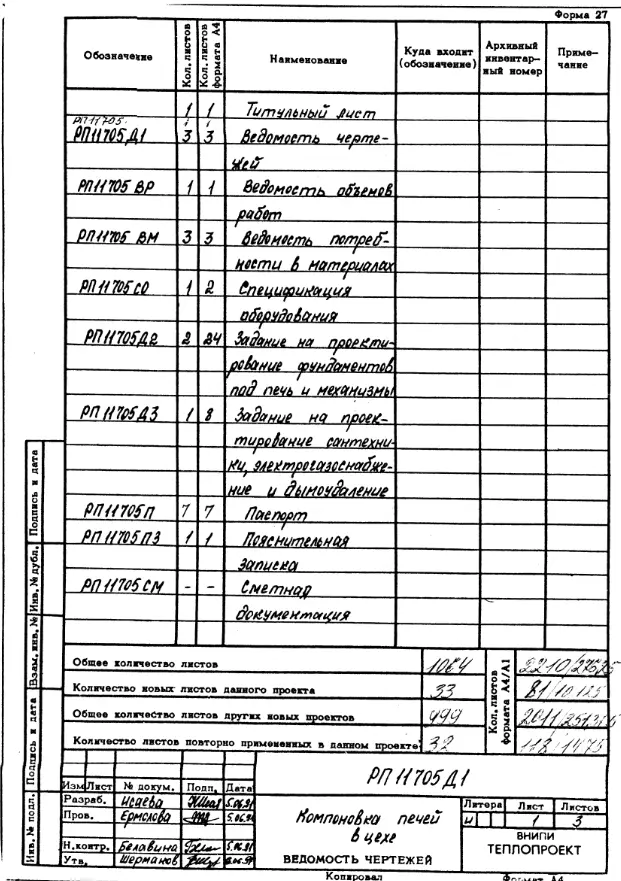 Форма 27
Обозначение Кол. листов Кол. листов формата А4 Наименование Куда входит (обозначение) Архивный инвентарный номер Примечание
1 1 Титульный лист
РП11705
РП11705Д1 3 3 Ведомость черте-
жей
РП11705 ВР 1 1 Ведомость объемов
работ
РП11705 ВМ 3 3 Ведомость потреб-
ности в материалах
РП11705 СО 1 2 Спецификация
оборудования
РП11705Д2 2 24 Задание на проекти-
рование фундаментов
под печь и механизмы
РП11705Д3 1 8 Задание на проек-
тирование сантехни-
ки, электрогазоснабже-
ние и дымоудаление
РП11705П 7 7 Паспорт
РП11705ПЗ 1 1 Пояснительная
записка
РП11705СМ - - Сметная
документация
Общее количество листов 1064
Количество новых листов данного проекта 33
Общее количество листов других новых проектов 999
Количество листов повторно примененных в данном проекте 32
Кол. листов формата А4/А1
РП11705Д1
Изм Лист № докум. Подп. Дата
Разраб. Исаева 5.06.91
Пров. Ермолова 5.06.91
Н.контр. Белавина
Утв. Шерманов
Компоновка печей
в цехе
ВЕДОМОСТЬ ЧЕРТЕЖЕЙ
Литера Лист Листов
И 1 3
ВНИПИ
ТЕПЛОПРОЕКТ
Инв. № подл. Подпись и дата Взам. инв. № Инв. № дубл. Подпись и дата
Копировал Формат А4